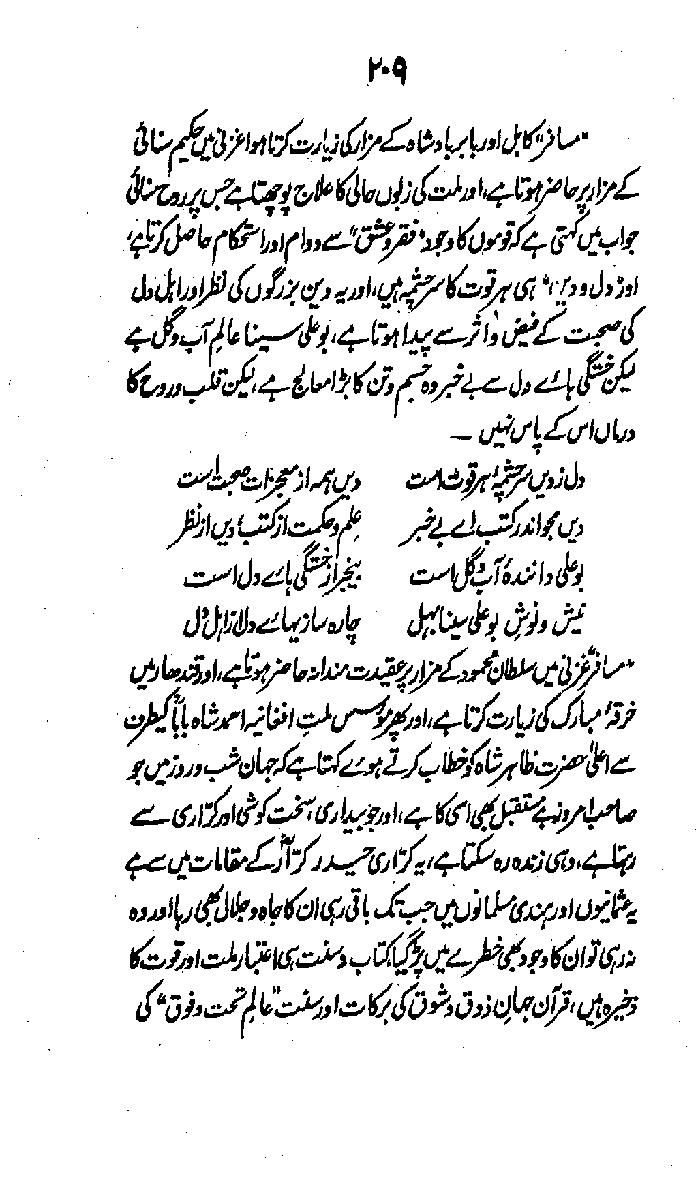 ۲۰۹
"مسافر" کابل اور بابر بادشاہ کے مزار کی زیارت کرتا ہوا غزنی میں حکیم سنائی
کے مزار پر حاضر ہوتا ہے، اور ملت کی زبوں حالی کا علاج پوچھتا ہے جس پر روح سنائی
جواب میں کہتی ہے کہ قوموں کا وجود "فقر و عشق" سے دوام اور استحکام حاصل کرتا ہے،
اور "دل و دین" ہی ہر قوت کا سرچشمہ ہیں، اور یہ دین بزرگوں کی نظر اور اہل دل
کی صحبت کے فیض و اثر سے پیدا ہوتا ہے، بوعلی سینا عالم آب و گل ہے
لیکن خستگی ہائے دل سے بے خبر وہ جسم و تن کا بڑا معالج ہے، لیکن قلب و روح کا
درماں اس کے پاس نہیں ـ
دل ز دیں سرچشمۂ ہر قوت است دیں ہمہ از معجزات صحبت است
دیں مجو اندر کتب اے بے خبر علم و حکمت از کتب دیں از نظر
بوعلی دانندۂ آب و گل است بیخبر از خستگی ہائے دل است
نیش و نوش بوعلی سینا بہل چارہ سازیہائے دل از اہل دل
"مسافر" غزنی میں سلطان محمود کے مزار پر عقیدت مندانہ حاضر ہوتا ہے، اور قندھار میں
خرقۂ مبارک کی زیارت کرتا ہے، اور پھر مؤسس ملت افغانیہ احمد شاہ باباؒ کیطرف
سے اعلیٰ حضرت ظاہر شاہ کو خطاب کرتے ہوئے کہتا ہے کہ جہان شب و روز میں جو
صاحب امروز ہے مستقبل بھی اسی کا ہے، اور جو بیداری، سخت کوشی اور کرّاری سے
رہتا ہے، وہی زندہ رہ سکتا ہے، یہ کرّاری حیدر کرّارؓ کے مقامات میں سے ہے
یہ عثمانیوں اور ہندی مسلمانوں میں جب تک باقی رہی ان کا جاہ و جلال بھی رہا اور وہ
نہ رہی تو ان کا وجود بھی خطرے میں پڑ گیا کتاب و سنت ہی اعتبار ملت اور قوت کا
ذخیرہ ہیں، قرآن جہانِ ذوق و شوق کی برکات اور سنت "عالم تحت و فوق" کی